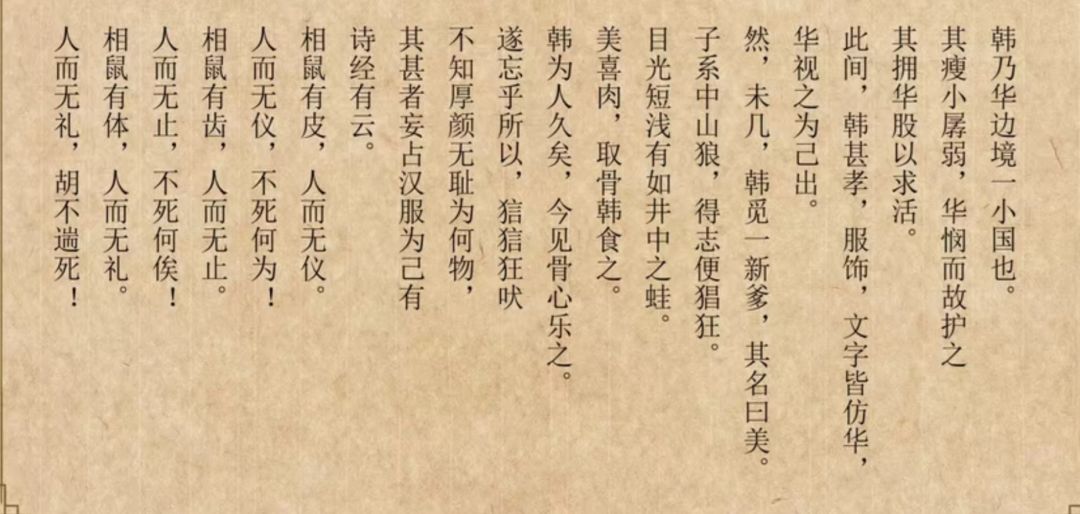 韩乃华边境一小国也。
其瘦小孱弱，华悯而故护之
其拥华股以求活。
此间，韩甚孝，服饰，文字皆仿华，
华视之为己出。
然，未几，韩觅一新爹，其名曰美。
子系中山狼，得志便猖狂。
目光短浅有如井中之蛙。
美喜肉，取骨韩食之。
韩为人久矣，今见骨心乐之。
遂忘乎所以，狺狺狂吠
不知厚颜无耻为何物，
其甚者妄占汉服为己有
诗经有云。
相鼠有皮，人而无仪。
人而无仪，不死何为！
相鼠有齿，人而无止。
人而无止，不死何俟！
相鼠有体，人而无礼。
人而无礼，胡不遄死！